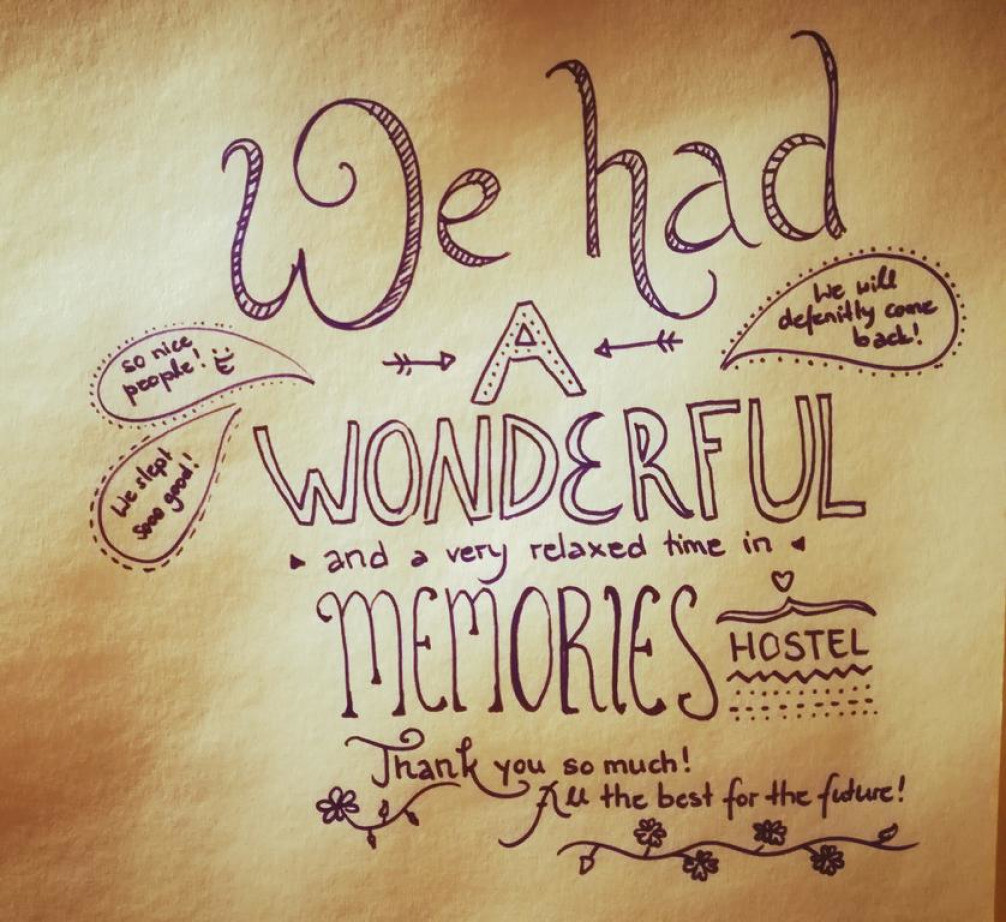 We had
We will
defenitly come
back!
A
so nice
people!
We slept
sooo good!
WONDERFUL
and a very relaxed time in
MEMORIES
HOSTEL
Thank you so much!
All the best for the future!